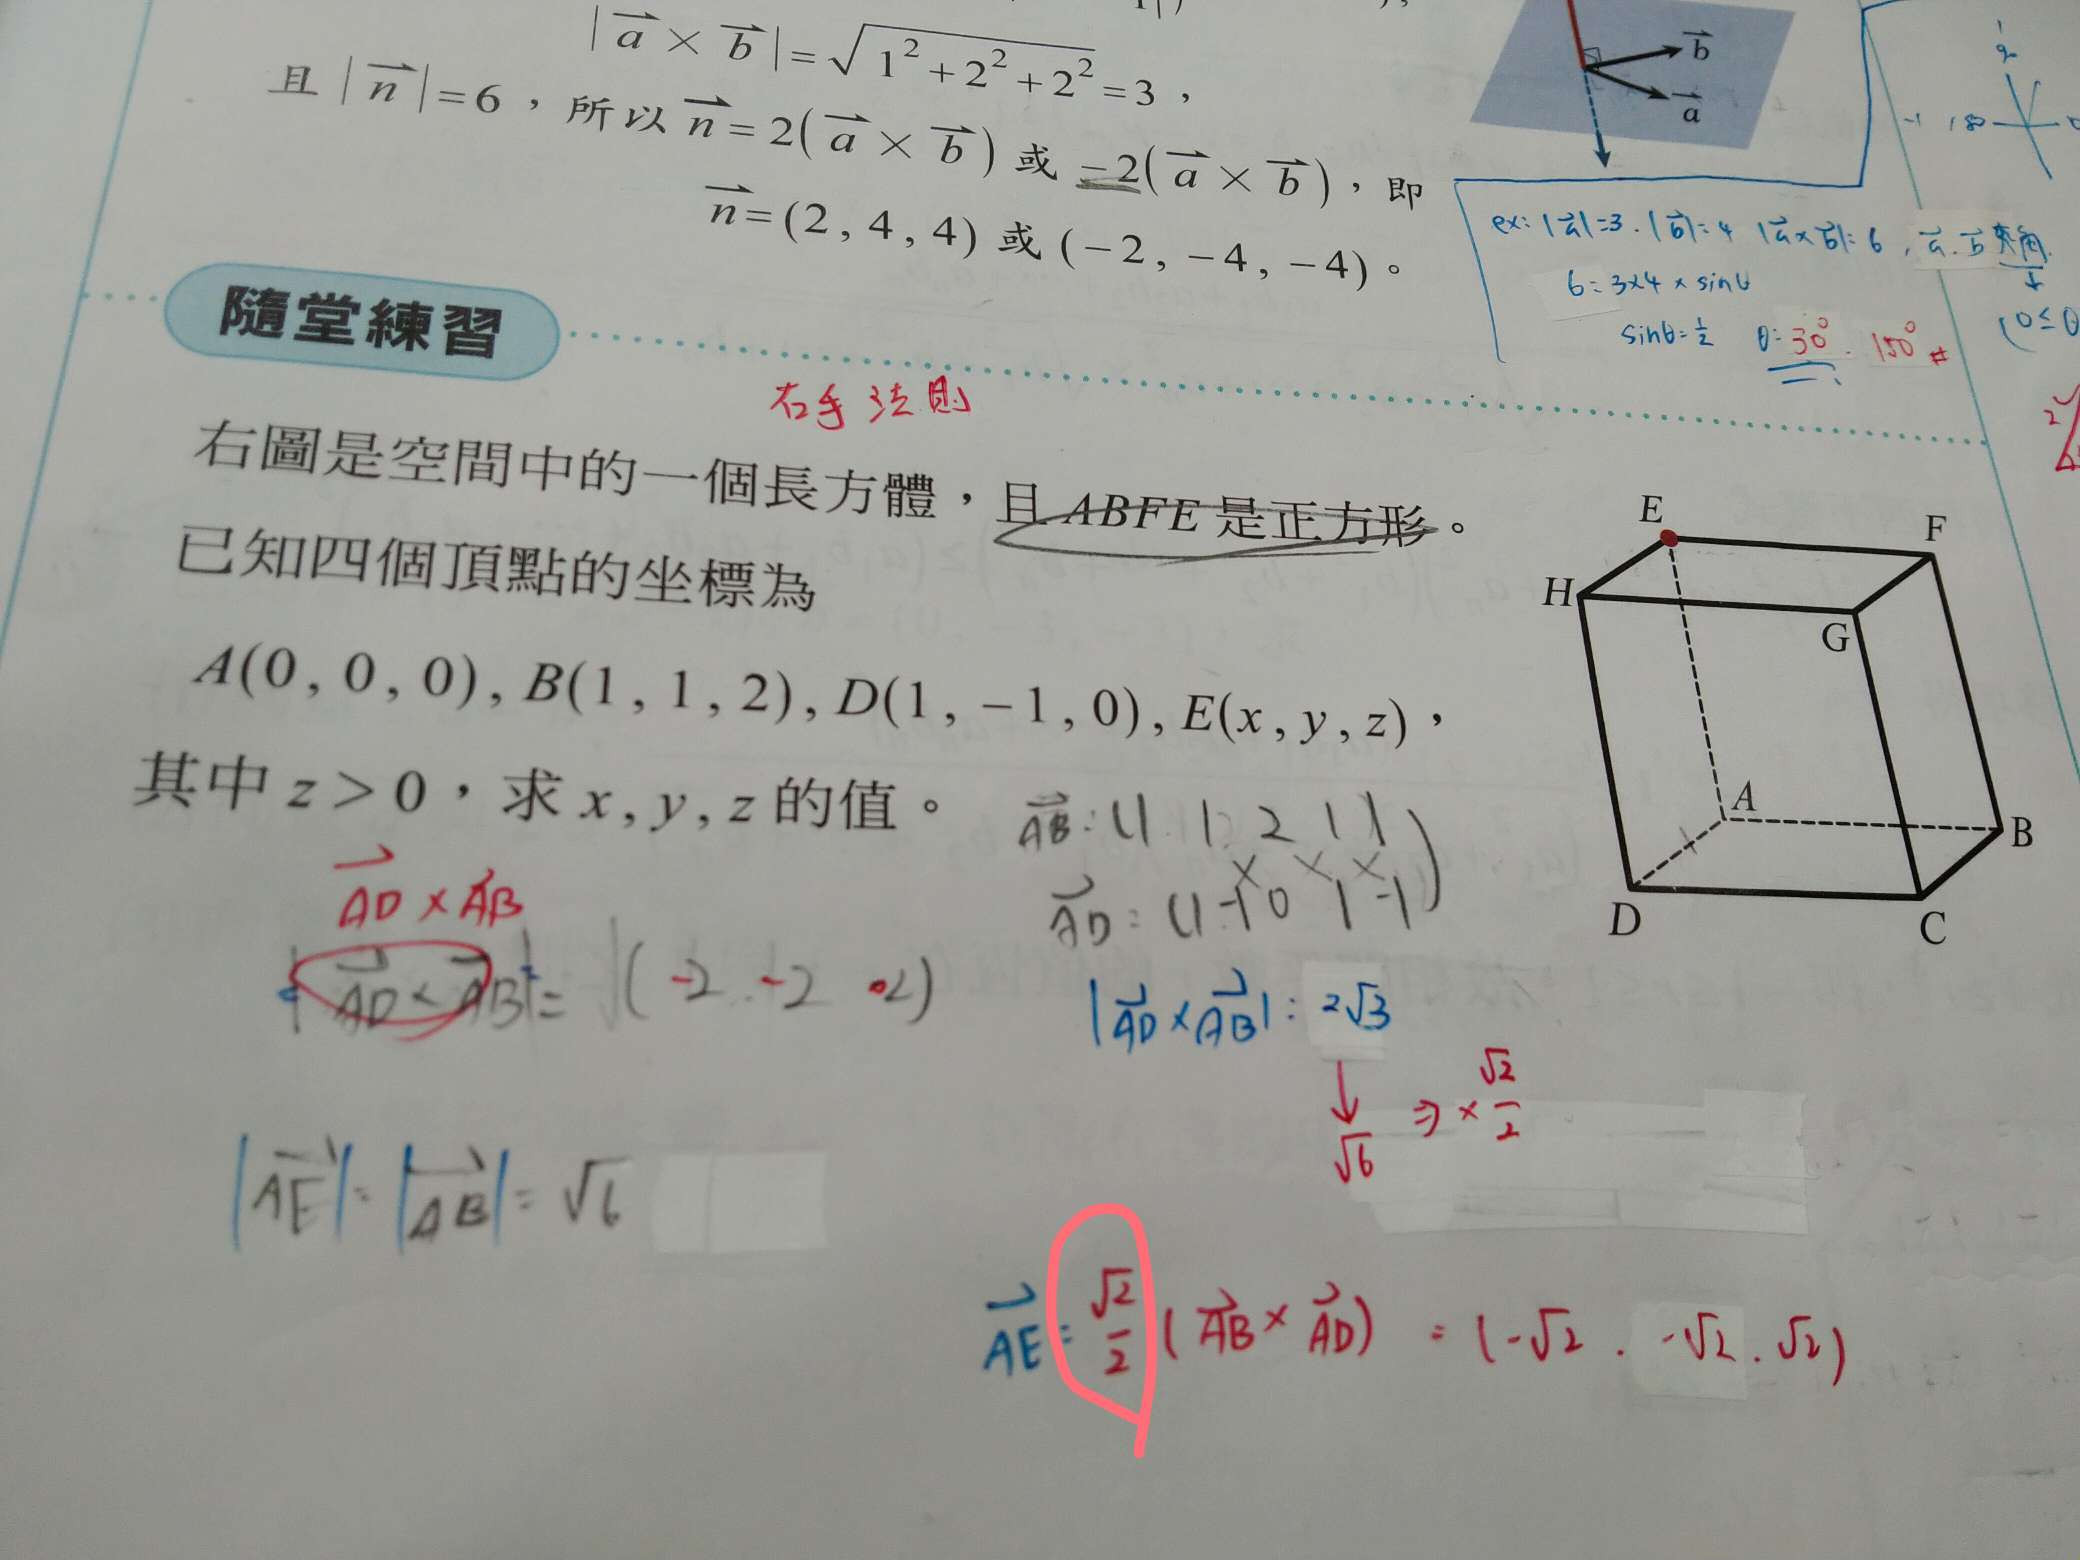 |a × b| = √1² + 2² + 2² = 3，
且 |n| = 6，所以 n = 2(a × b) 或 −2(a × b)，即
n = (2, 4, 4) 或 (−2, −4, −4)。
b
a
ex: |a|=3 . |b|=4 |a×b|=6 , a . b 夾角
6 = 3×4 × sinθ
sinθ = 1/2 θ = 30° . 150° #
隨堂練習
右手法則
右圖是空間中的一個長方體，且 ABFE 是正方形。
已知四個頂點的坐標為
A(0, 0, 0), B(1, 1, 2), D(1, −1, 0), E(x, y, z)，
其中 z > 0，求 x, y, z 的值。
E
F
H
G
A
B
D
C
AB : (1 1 2 1 1)
AD : (1 -1 0 1 -1)
AD × AB
|AD × AB| = |(-2 -2 2)
|AD × AB| : 2√3
↓ ⇒ × √2/2
√6
|AE| = |AB| = √6
AE = √2/2 (AB × AD) = (-√2 . -√2 . √2)